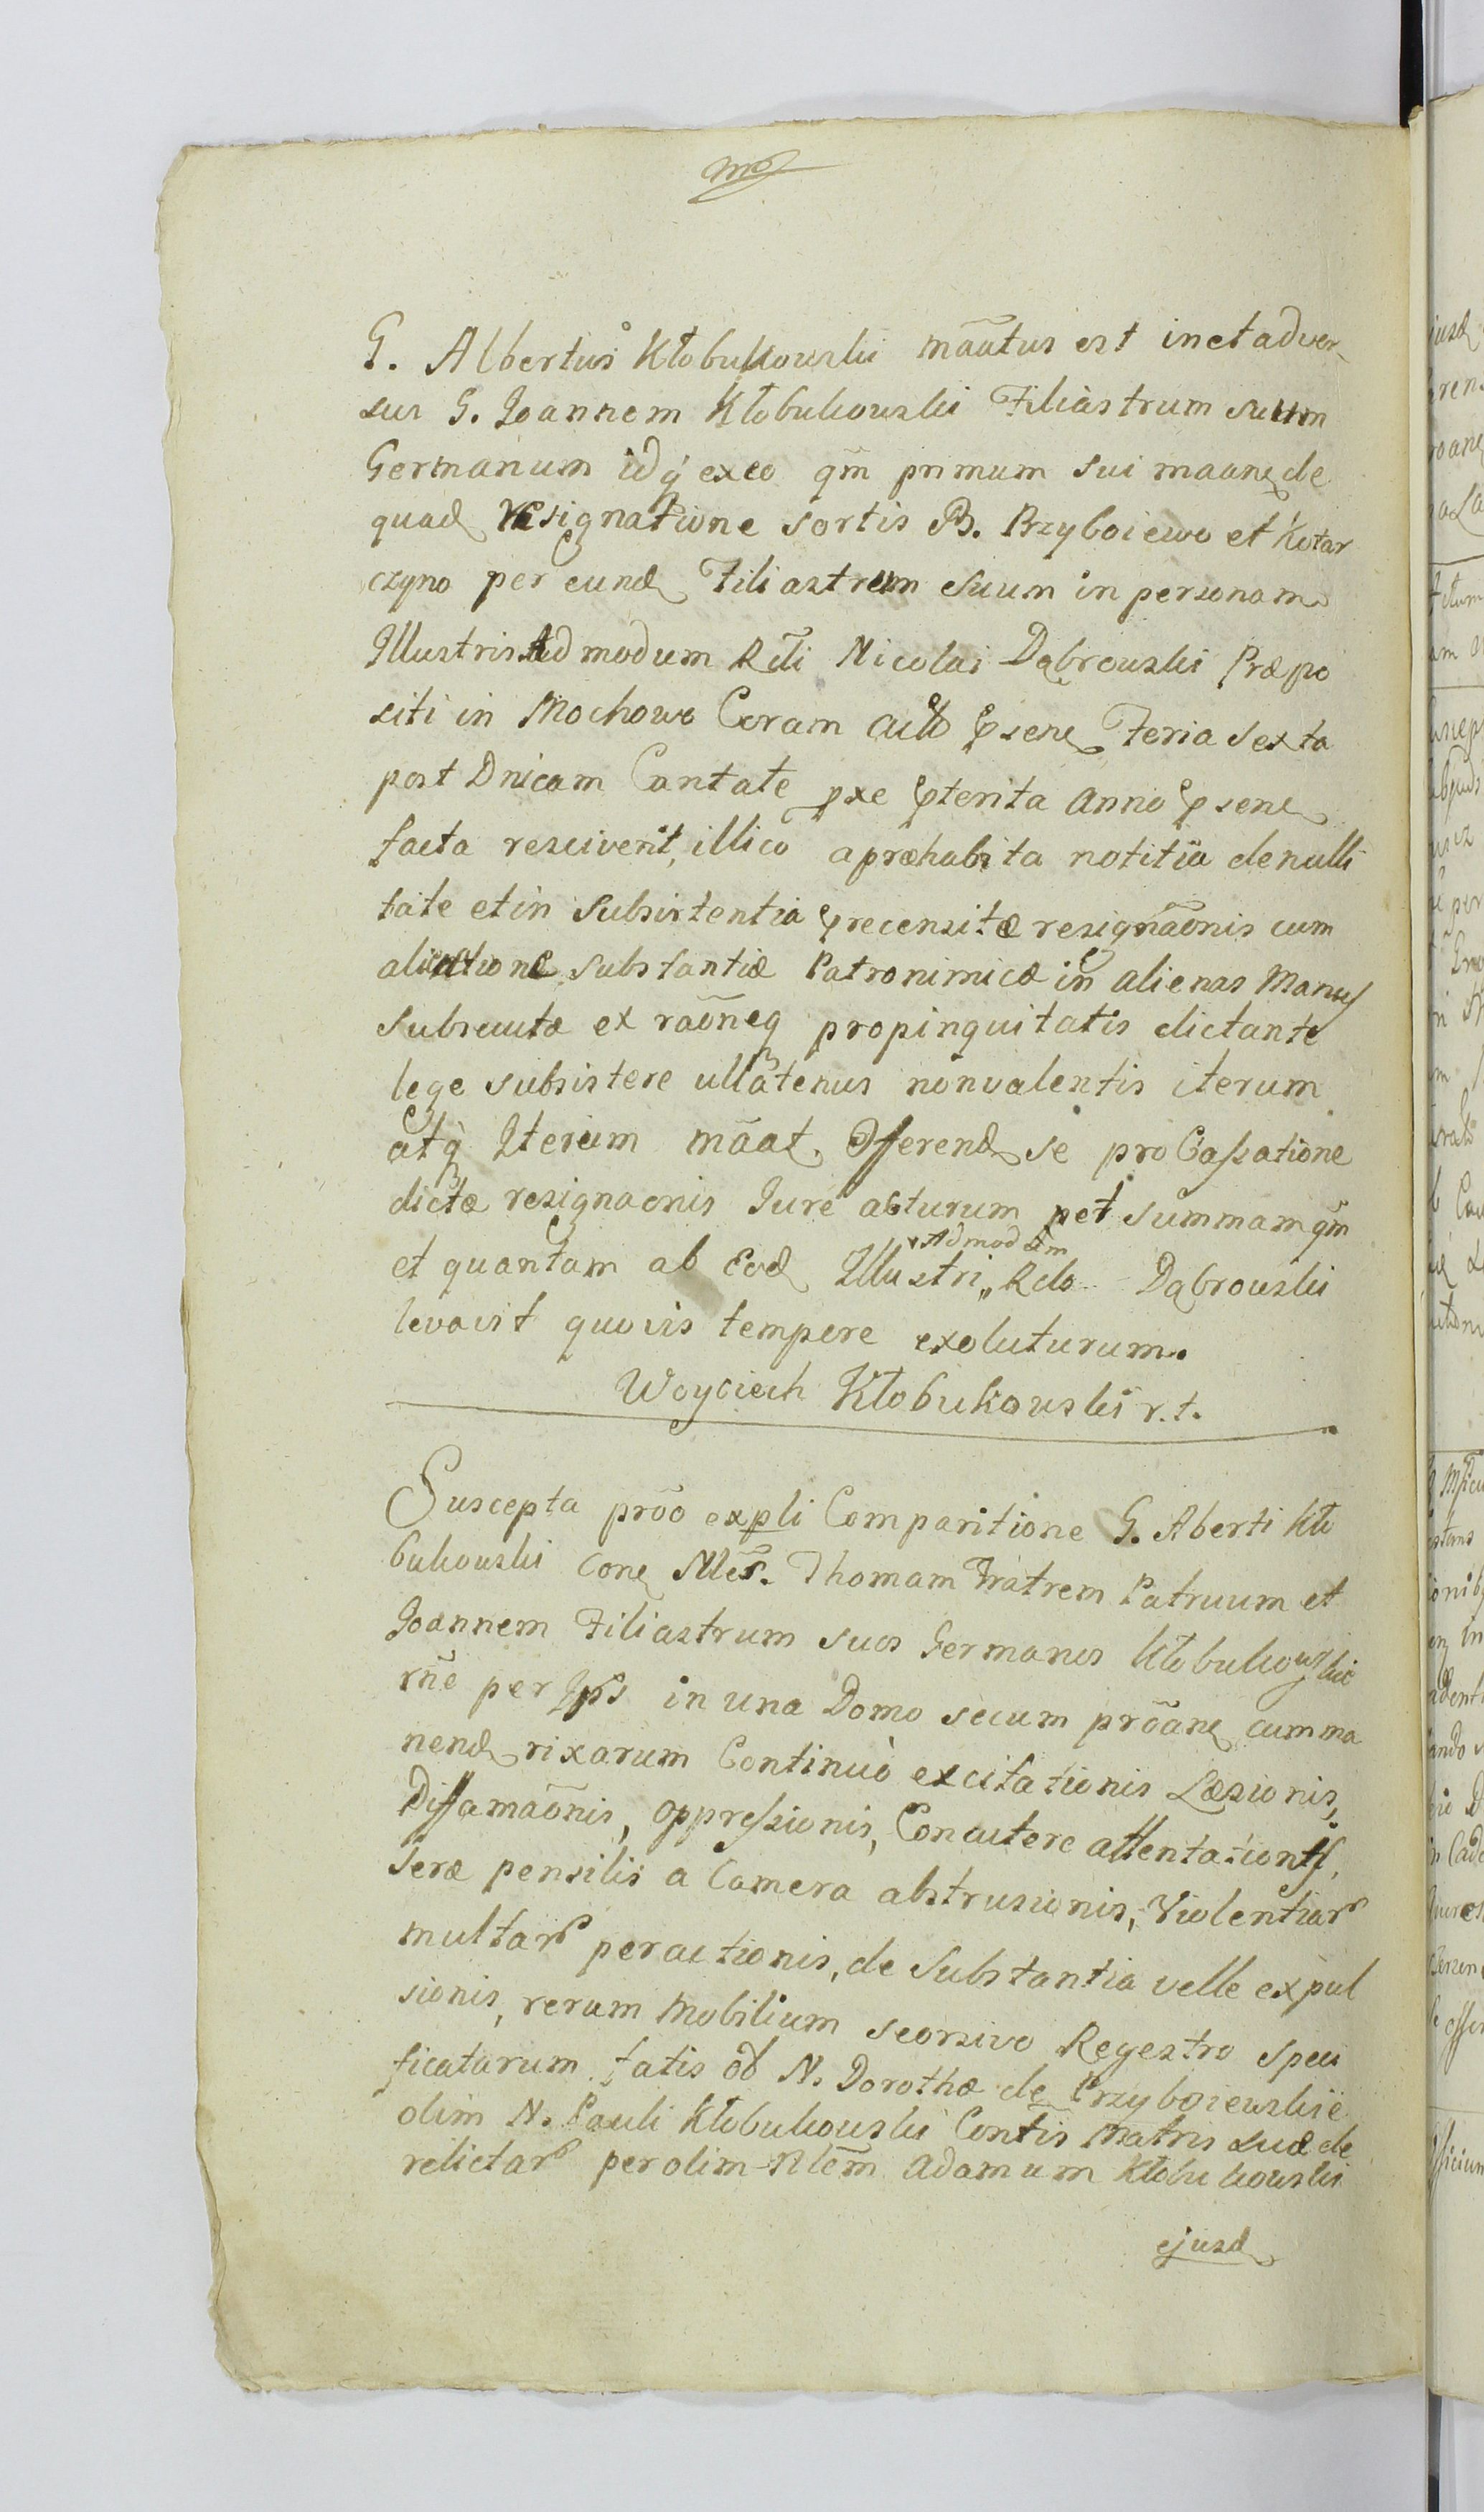 G. Albertus Kłobukowski mãatus est in et adver-
sus G. Joannem Kłobukowski Filiastrum suum
Germanum idq́ exeo qm̃ primum sui maane de
quad resignatione sortis B. Przyboiewo et Kotar
czyno per eund Filiastrum suum in personam
Illustris Admodum Rdi Nicolai Dąbrowski Præpo
siti in Mochowo Coram actis psene Feria sexta
post Dnicam Cantate pxe pterita Anno psene
facta resciverit, illico a præhabita notitia de nulli
tate et in subsistentia precensitæ resignãonis cum
alienatione substantiæ Patronimicæ in alienas Manus
subsecutæ ex raõneq propinquitatis dictante
lege subsistere ullatenus non valentis iterum
atq́ Iterum mãat. Offerend se pro Cassatione
dictæ resignaonis Jure acturum pet summam qm̃
et quantam ab Eod Illustri Admodum Rdo Dąbrowski
levavit quovis tempore exoluturum.
Woyciech Kłobukowski r. t.
Suscepta prõo expli Comparitione G. Aberti Kło
bukowski cone Nles. Thomam Fratrem Patruum et
Joannem Filiastrum suos Germanos Kłobukowskie
rñe per Ipś in una Domo secum prõane cumma
nend rixarum Continuò excitationis Læsionis,
Diffamaõnis, oppressionis, Concutere attentationis,
seræ pensilis a Camera abstrusionis, Violentiar
multar peractionis, de Substantia velle expul
sionis, rerum Mobilium seorsivo Regestro speci
ficatarum fatis od N. Dorothæ de Przyboiewskie
olim N. Pauli Kłobukowski Contis Matris suæ de
relictar per olim Nlem̃ Adamum Kłobukowski
ejusd